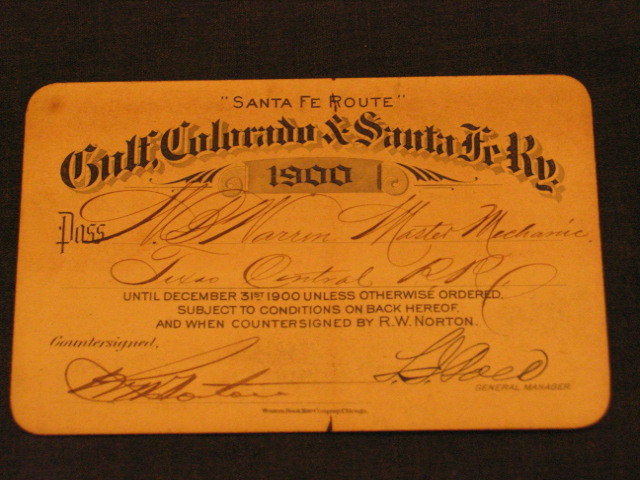 "SANTA FE ROUTE"
Gulf, Colorado & Santa Fe Ry.
1900
Pass W. B. Warren Master Mechanic.
Texas Central R.R.
UNTIL DECEMBER 31ST 1900 UNLESS OTHERWISE ORDERED,
SUBJECT TO CONDITIONS ON BACK HEREOF.
AND WHEN COUNTERSIGNED BY R.W. NORTON.
Countersigned,
R W Norton
GENERAL MANAGER